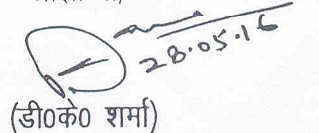 28.05.16
(डी0के0 शर्मा)